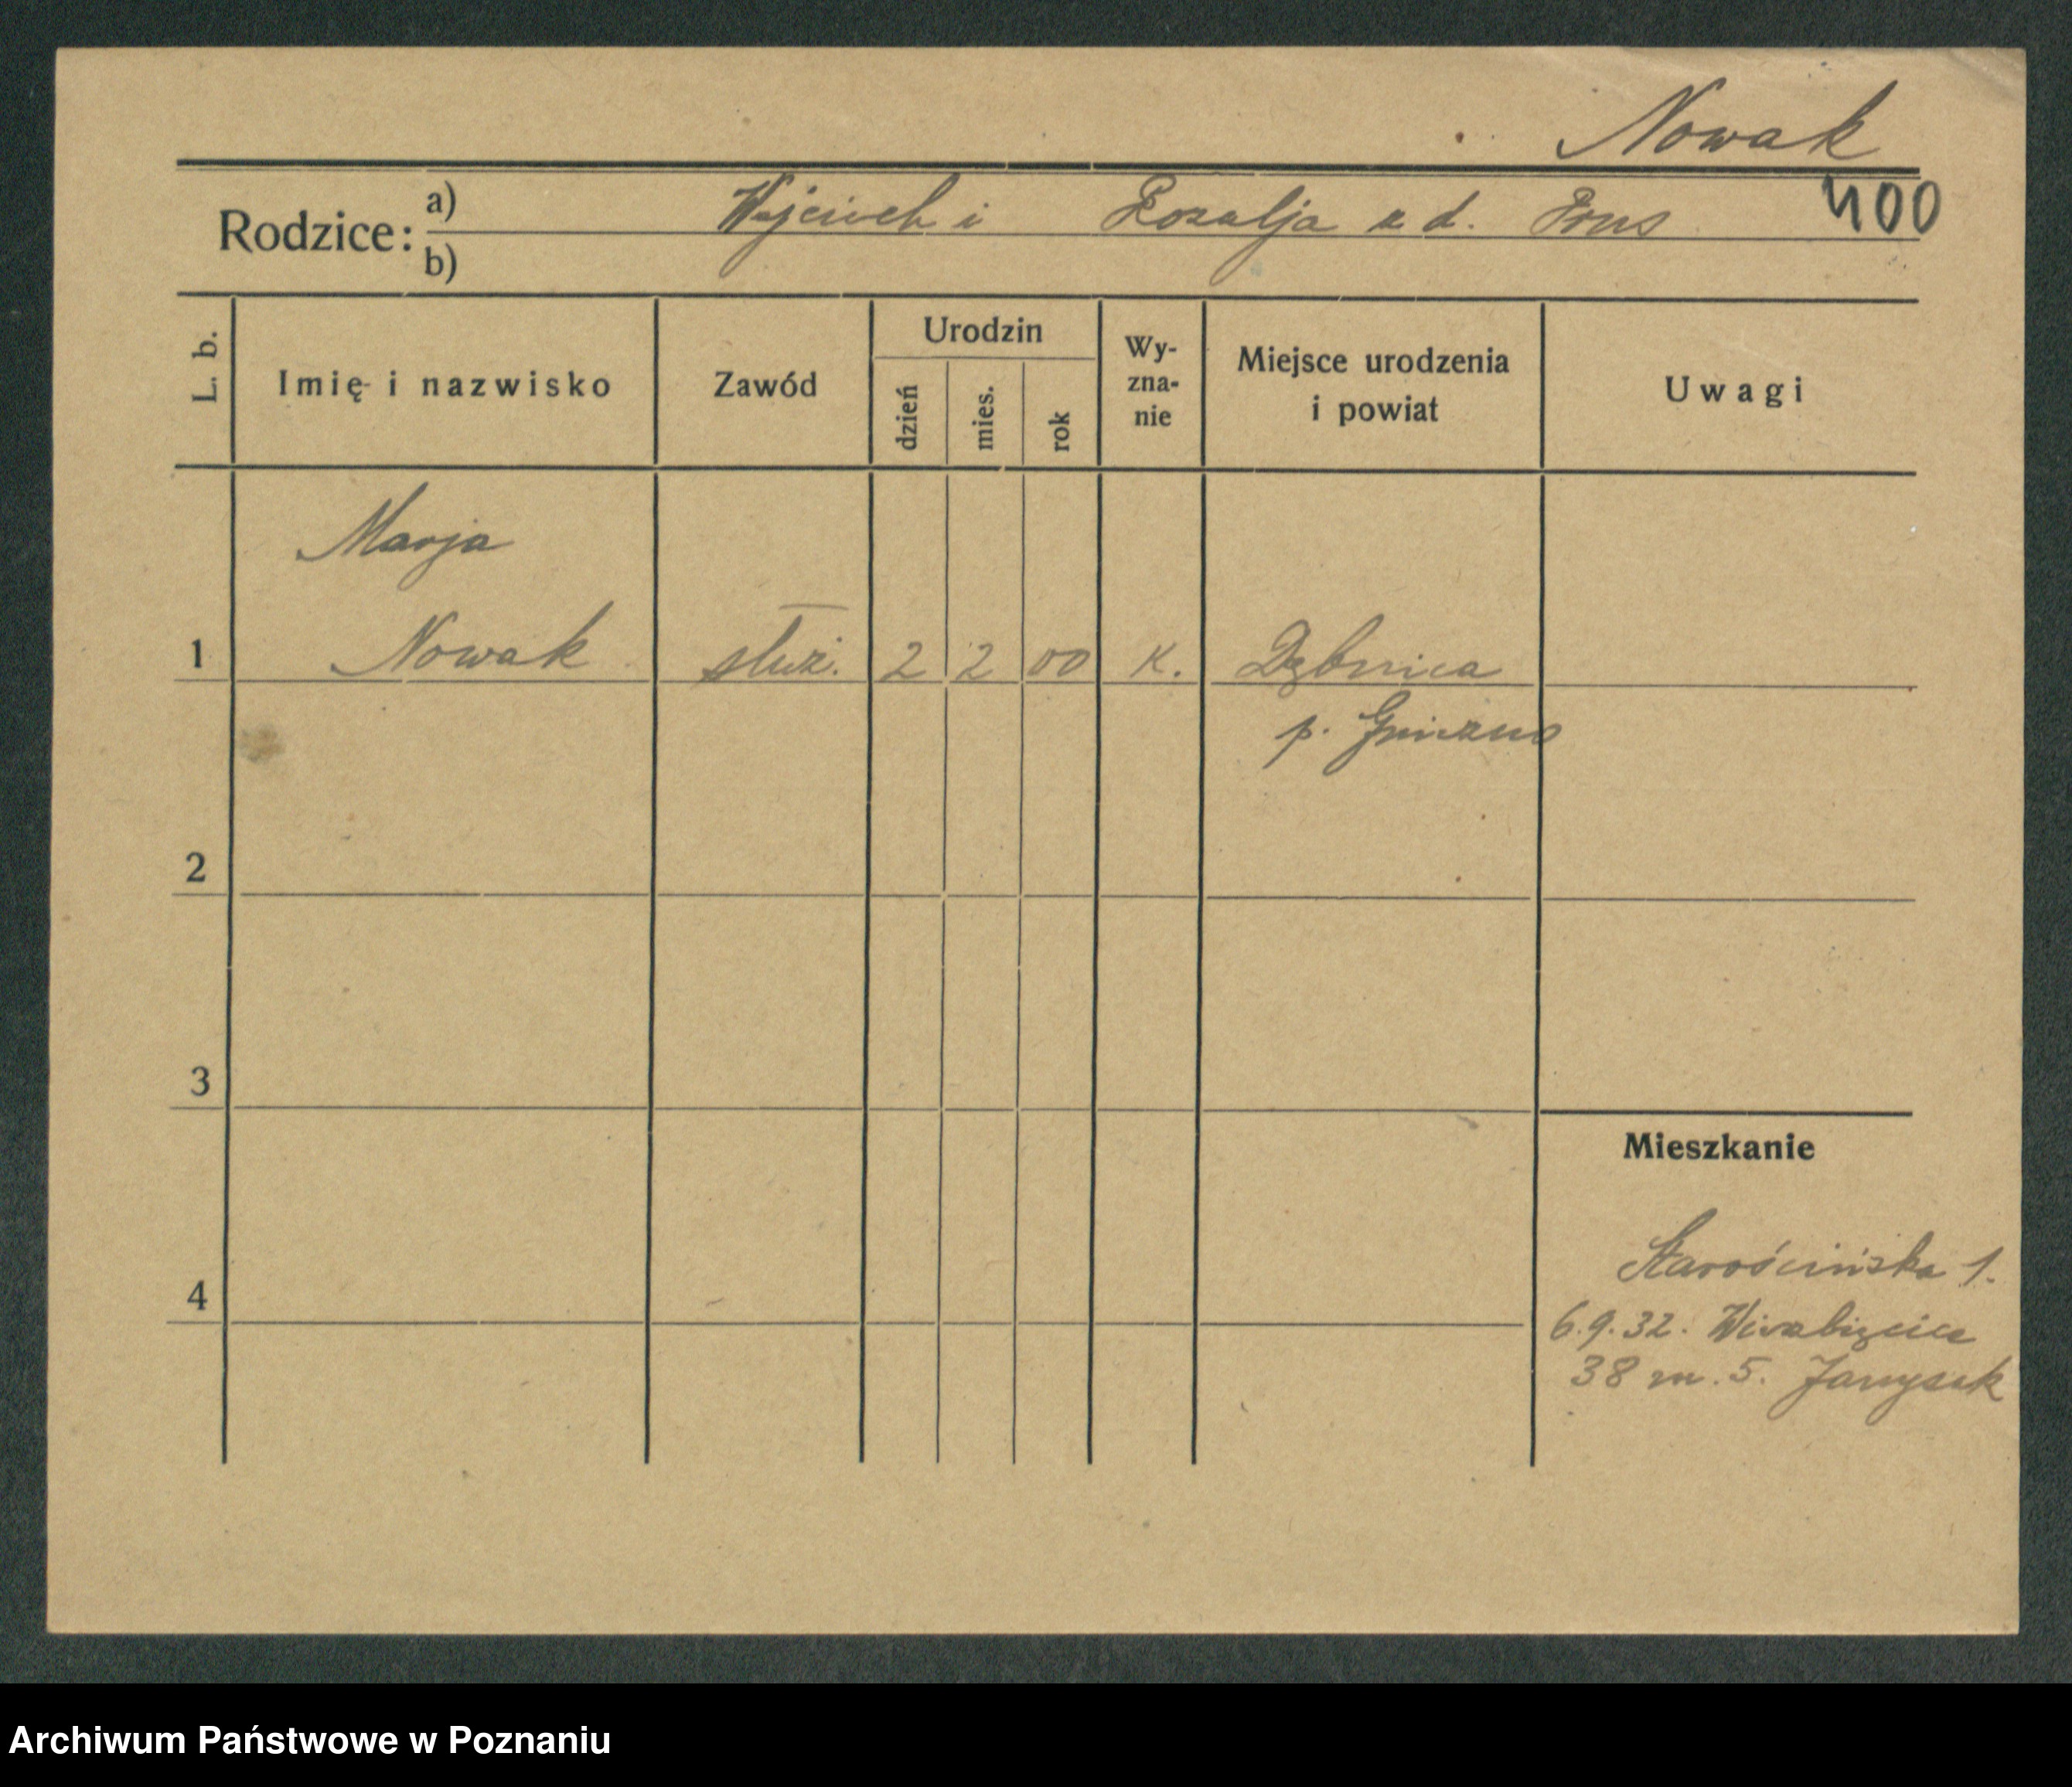 Nowak
400
Rodzice: a) Wojciech i Rozalja z d. Prus
b)
L. b. Imię i nazwisko Zawód Urodzin dzień mies. rok Wy-zna-nie Miejsce urodzenia i powiat Uwagi
Marja
1 Nowak służ. 2 2 00 K. Dębnica
p. Gniezno
2
3
Mieszkanie
Starościńska 1.
4
6.9.32. Wierzbięcice
38 m. 5. Janysek
Archiwum Państwowe w Poznaniu